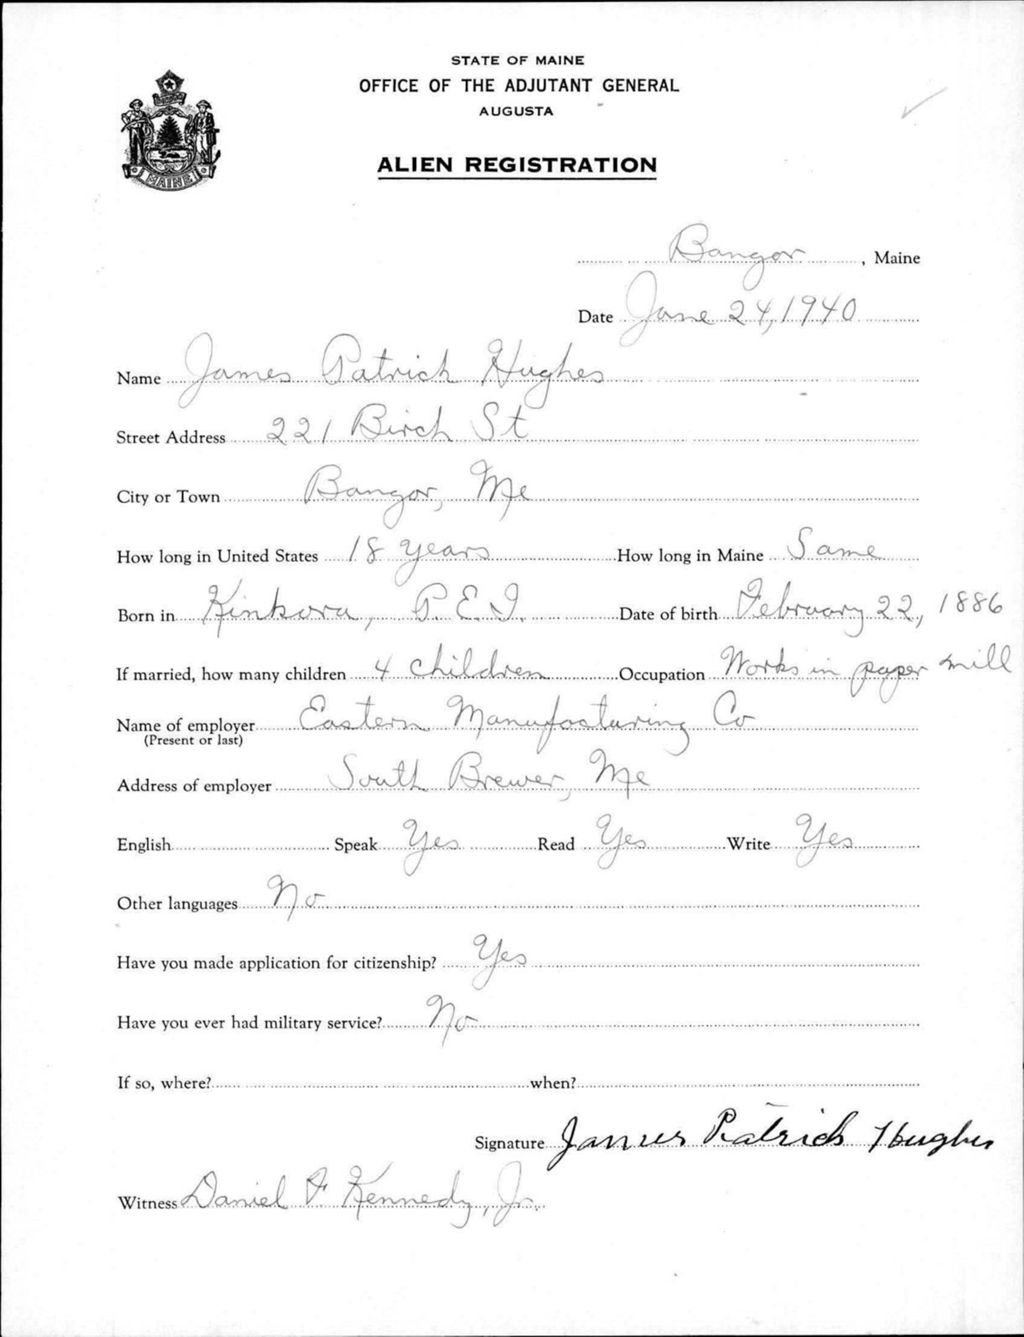 STATE OF MAINE
OFFICE OF THE ADJUTANT GENERAL
AUGUSTA
ALIEN REGISTRATION
MAINE
Bangor, Maine
Date June 24, 1940
Name James Patrick Hughes
Street Address 221 Birch St
City or Town Bangor, Me
How long in United States 18 years How long in Maine Same
Born in Kinkora, P.E.I. Date of birth February 22, 1886
If married, how many children 4 children Occupation Works in paper mill
Name of employer Eastern Manufacturing Co
(Present or last)
Address of employer South Brewer, Me
English Speak Yes Read Yes Write Yes
Other languages No
Have you made application for citizenship? Yes
Have you ever had military service? No
If so, where? when?
Signature James Patrick Hughes
Witness Daniel F Kennedy, Jr.